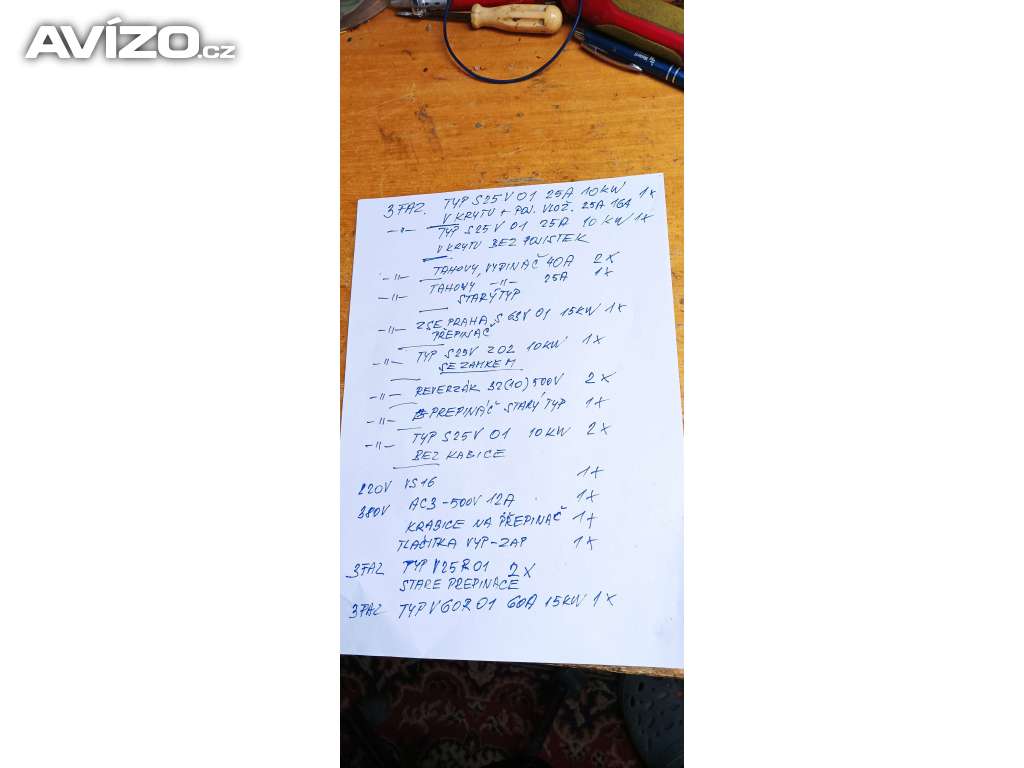 AVÍZO.cz
3 FAZ. TYP S25 V 01 25A 10 KW 1x
V KRYTU + POJ. VLOŽ. 25A 161
-"- TYP S25 V 01 25A 10 KW 1x
V KRYTU BEZ POJISTEK
-"- TAHOVY, VYPINAČ 40A 2x
-"- TAHOVY -"- 25A 1x
STARÝ TYP
-"- ZSE PRAHA S 63 V 01 15 KW 1x
PŘEPINAČ
-"- TYP S25V Z02 10KW 1x
SE ZAMKEM
-"- REVERZÁK 32(10) 500V 2x
-"- PREPINÁČ STARÝ TYP 1x
-"- TYP S25 V 01 10 KW 2x
BEZ KABICE
220V VS16 1x
380V AC3-500V 12A 1x
KRABICE NA PŘEPINAČ 1x
TLAČITKA VYP-ZAP 1x
3FAZ TYP V25R01 2x
STARE PREPINAČE
3FAZ TYP V60R01 60A 15KW 1x